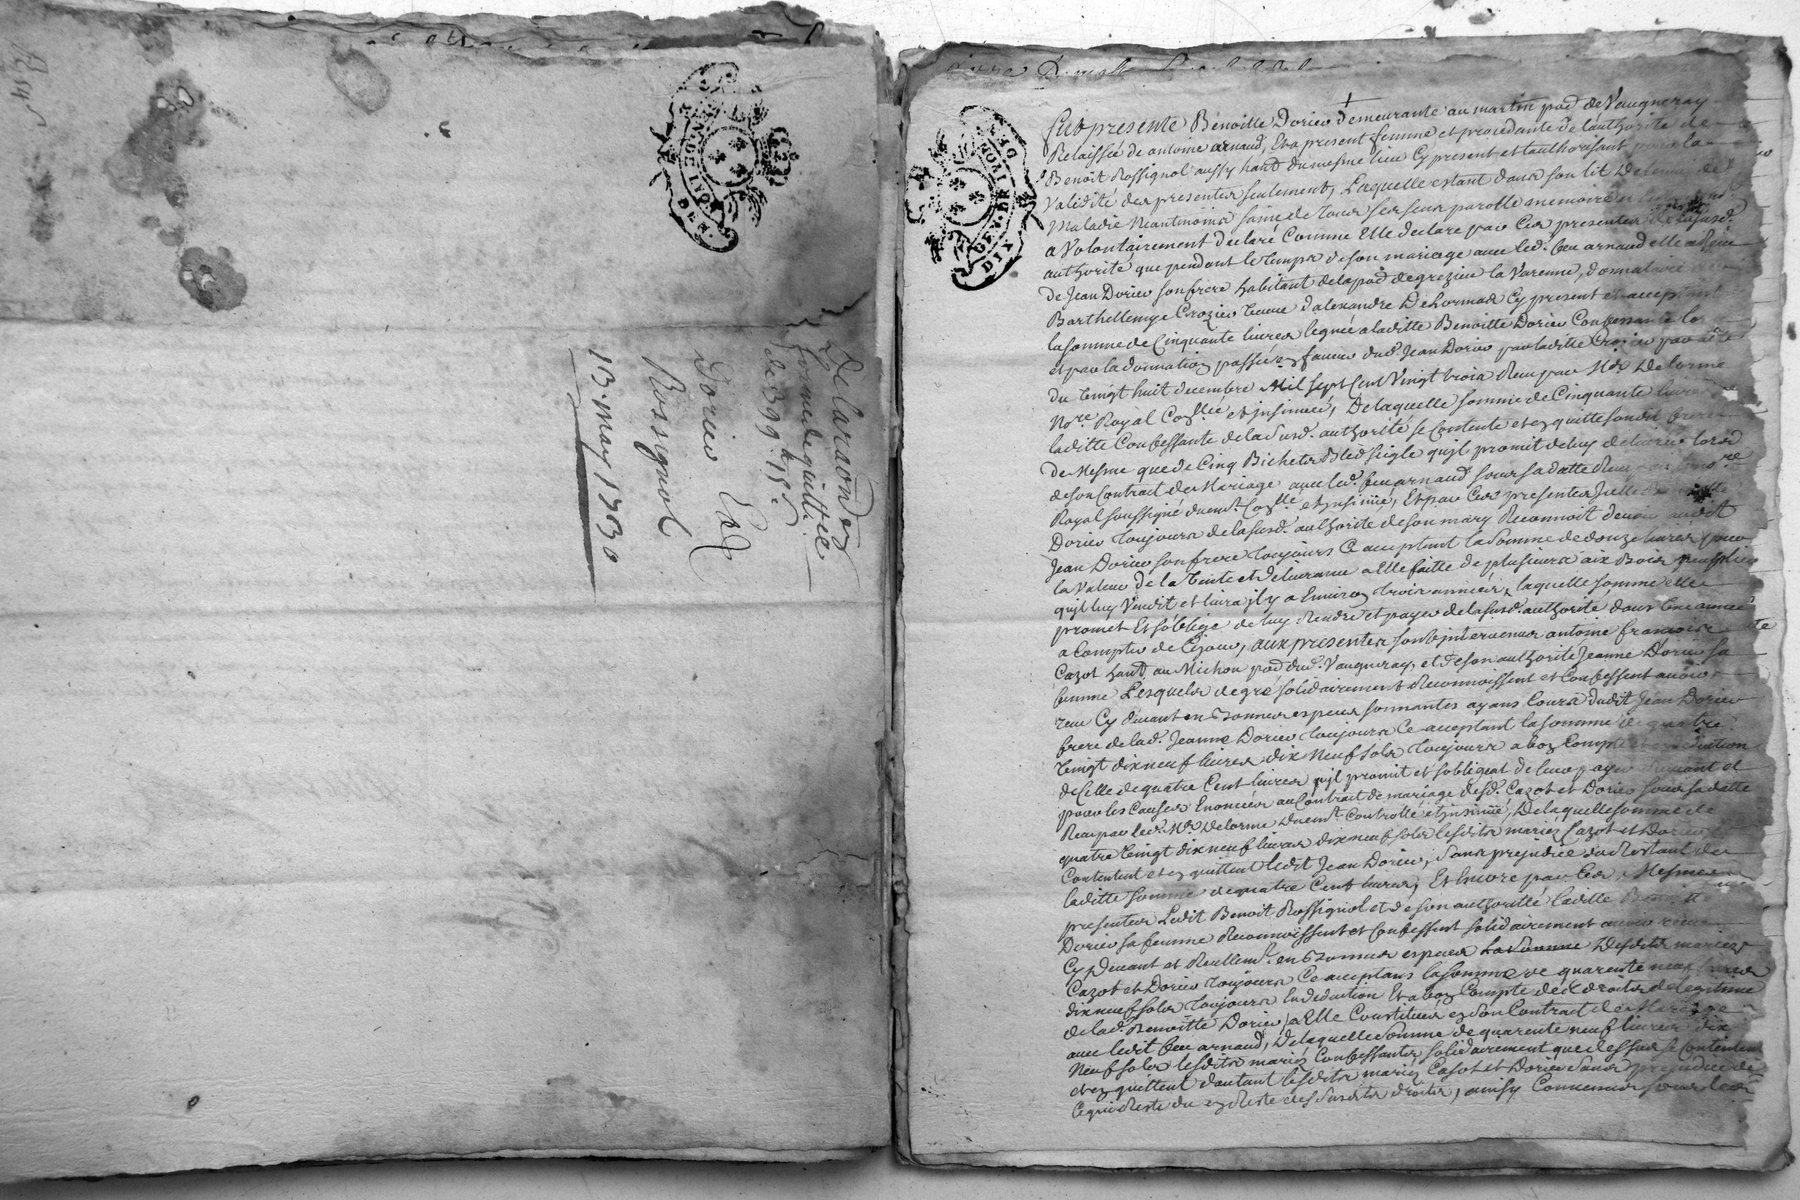 Declaraon des
forme de quittce
de 399lt 15s
Dorieu Et
Rossignol
13. may 1730
Fut presente Benoitte Dorieu demeurante au martin pad de Vaugneray
Relaissée de antoine arnaud, Et a present femme et procedante de lauthorité de
Benoit Rossignol aussy hant du mesme lieu Cy present et lauthorisant pour la
Validité des presentes seulement, Laquelle estant dans son lit detenue de
Maladie Neantmoins saine de tous ses sens parolle memoire
a Volontairement declaré Comme Elle declare par Ces presentes de la susd.
authorité que pendant le temps de son mariage avec led. feu arnaud elle a Receu
de Jean Dorieu son frere habitant de la pad de grezieu la Varenne, donnataire
Barthellemye Crozier veuve d'alexandre Cy present et acceptant
la somme de Cinquante livres leguée a laditte Benoitte Dorieu Confessante
et par la donnation passée en faveur dud. Jean Dorieu par laditte Crozier par acte
du vingt huit decembre Mil sept Cent Vingt trois Receu par Mre Delorme
Nore Royal Conllée et insinuée, De laquelle somme de Cinquante livres
laditte Confessante de la susd. authorité se Contente et en quitte sondit frere
de Mesme que de Cinq Bichets Bled seigle qu'il promit de luy delivrer lors
de son Contrat de Mariage avec led. feu arnaud sous sa datte Receu nore
Royal soussigné duemt Conllé et insinué, Et par Ces presentes
Dorieu toujours de la susd. authorité de son mary Reconnoit devoir audit
Jean Dorieu son frere toujours Ce acceptant la somme de douze livres pour
la Valeur de la Vente et delivrance a Elle faitte de plusieurs aix Bois
qu'il luy Vendit et livra il y a Environ trois années, laquelle somme elle
promet Et s'oblige de luy Rendre et payer de la susd. authorité dans Une année
a Compter de Ce jour, aux presentes sont intervenus antoine françois
Cazot hant au Michon pad dud. Vaugneray, et de son authorité Jeanne Dorieu sa
femme Lesquels de gré solidairement Reconnoissent et Confessent avoir
receu Cy devant en Bonnes especes sonnantes ayans Cours dudit Jean Dorieu
frere de lad. Jeanne Dorieu toujours Ce acceptant la somme de quatre
Vingt dix neuf livres dix Neuf sols toujours a bon Compte et en deduction
de Celle de quatre Cent livres qu'il promit et s'obligeat de leur payer
pour les Causes Enoncées au Contrat de mariage desd. Cazot et Dorieu sous sa datte
Receu par led. Me Delorme duemt Controllé et insinué, De laquelle somme de
quatre Vingt dix neuf livres dix neuf sols lesdits mariez Cazot et Dorieu
Contentent et en quittent ledit Jean Dorieu, sans prejudice du Restant de
laditte somme de quatre Cent livres, Et Encore par Ces Mesmes
presentes Ledit Benoit Rossignol et de son authoritté laditte Benoitte
Dorieu sa femme Reconnoissent et Confessent solidairement avoir receu
Cy devant et Reellemt en Bonnes especes la somme desdits mariez
Cazot et Dorieu toujours Ce acceptans la somme de quarente neuf livres
dix neuf sols toujours En deduction Et a bon Compte des droits de legitime
de lad. Benoitte Dorieu a Elle Constituées en son Contrat de Mariage
avec ledit feu arnaud, De laquelle somme de quarente neuf livres dix
Neuf sols lesdits mariez Confessants solidairement que dessus se Contentent
et en quittent d'autant lesdits mariez Cazot et Dorieu sans prejudice de
Ce qui Reste du en Reste des susdits droits, ainsy Convenu